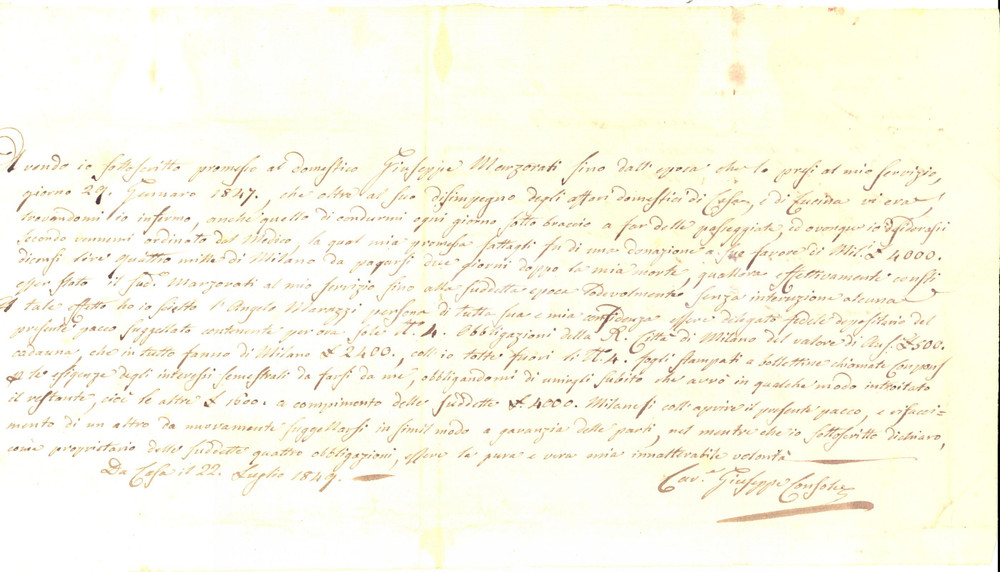 Avendo io sottoscritto promesso al domestico Giuseppe Marzorati sino dall'epoca, che lo presi al mio servizio,
giorno 27. Gennaro 1847, che oltre al suo disimpegno degli affari domestici di Casa, e di Cucina vi era,
trovandomi io infermo, anche quello di condurmi ogni giorno sotto braccio a far delle passeggiate, ed ovunque io desiderassi
secondo vennemi ordinato dal Medico, la qual mia promessa fattagli fu di una donazione a suo favore di Mil.i £ 4000.
dicensi lire quattro mille di Milano da pagarsi dieci giorni doppo la mia morte, quallora effettivamente consti
esser stato il sud.o Marzorati al mio servizio sino alla suddetta epoca lodevolmente senza interuzione alcuna
A tale effetto ho io scielto l'Angelo Marazzi persona di tutta sua e mia confidenza essere delegato fidele depositario del
presente pacco suggellato contenente per ora sole N. 4. Obbligazioni della R. Città di Milano del valore di Aus. £ 500.
cadauna, che in tutto fanno di Milano £ 2400, coll'io tolte fuori li N. 4. fogli stampati a bollettine chiamate Coupons
p le esigenze degli interessi semestrali da farsi da me, obbligandomi di unirgli subito che avrò in qualche modo introitato
il restante, cioè le altre £ 1600. a compimento delle suddette £ 4000. Milanesi coll'aprire il presente pacco, e rifacci-
mento di un altro da nuovamente suggellarsi in simil modo a garanzia delle parti, nel mentre che io sottoscritto dichiaro,
come proprietario delle suddette quattro obbligazioni, essere la pura e vera mia innalterabile volontà
Da Casa il 22. Luglio 1847.
Cav.e Giuseppe Console